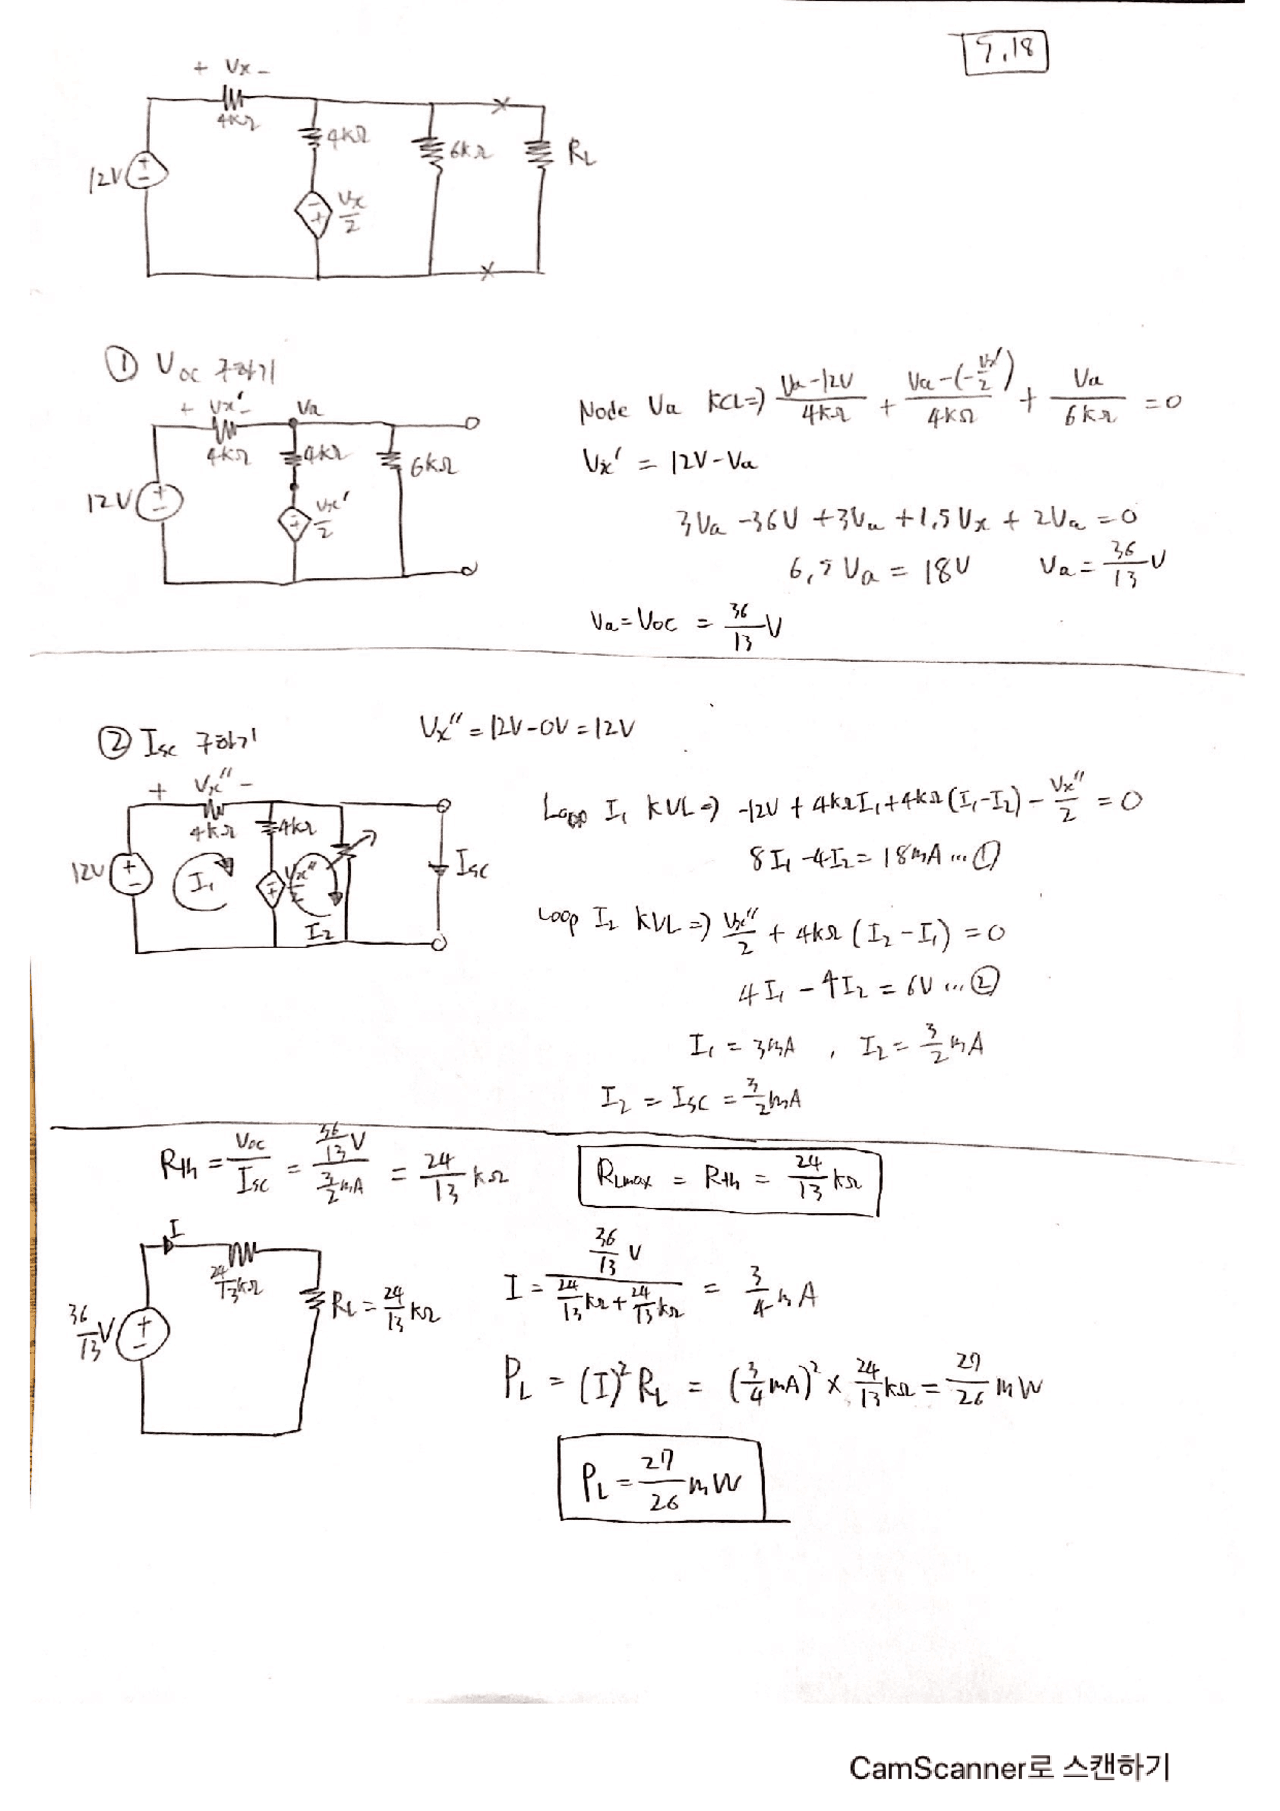 5.18
+ Vx -
4kΩ
4kΩ
6kΩ
RL
12V
+
-
-
+
Vx/2
① Voc 구하기
+ Vx' -
Va
4kΩ
4kΩ
6kΩ
12V
+
-
-
+
Vx'/2
Node Va KCL⇒) (Va-12V)/4kΩ + (Va-(-Vx'/2))/4kΩ + Va/6kΩ = 0
Vx' = 12V-Va
3Va -36V +3Va +1,5Vx + 2Va = 0
6,5Va = 18V Va = 36/13 V
Va = Voc = 36/13 V
② Isc 구하기
Vx'' = 12V-0V = 12V
+ Vx'' -
4kΩ
4kΩ
12V
+
-
I1
-
+
Vx''/2
I2
Isc
Loop I1 KVL⇒) -12V + 4kΩI1+4kΩ(I1-I2) - Vx''/2 = 0
8I1 -4I2 = 18mA ...①
Loop I2 KVL⇒) Vx''/2 + 4kΩ (I2-I1) = 0
4I1 - 4I2 = 6V ...②
I1 = 3mA , I2 = 3/2 mA
I2 = Isc = 3/2 mA
Rth = Voc/Isc = (36/13 V)/(3/2 mA) = 24/13 kΩ
RLmax = Rth = 24/13 kΩ
I
24/13 kΩ
RL = 24/13 kΩ
36/13 V
+
-
I = (36/13 V)/(24/13 kΩ + 24/13 kΩ) = 3/4 mA
PL = (I)² RL = (3/4 mA)² × 24/13 kΩ = 27/26 mW
PL = 27/26 mW
CamScanner로 스캔하기